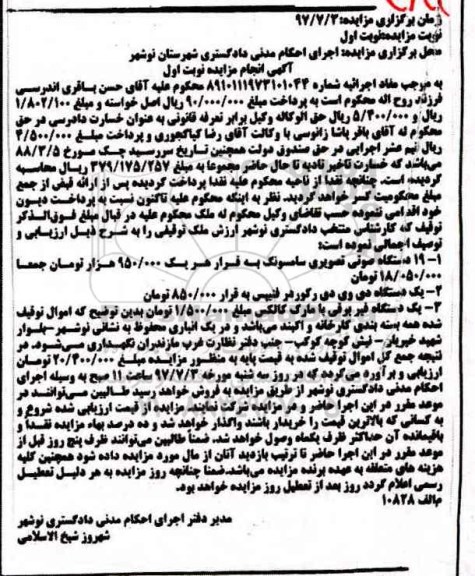 زمان برگزاری مزایده: ۹۷/۷/۳
نوبت مزایده: نوبت اول
محل برگزاری مزایده: اجرای احکام مدنی دادگستری شهرستان نوشهر
آگهی انجام مزایده نوبت اول
به موجب مفاد اجرائیه شماره ۸۹۱۰۱۱۱۹۷۳۱۰۱۰۴۴ محکوم علیه آقای حسن باقری اندرسی
فرزند روح اله محکوم است به پرداخت مبلغ ۹۰/۰۰۰/۰۰۰ ریال اصل خواسته و مبلغ ۱/۸۰۲/۱۰۰
ریال و ۵/۴۰۰/۰۰۰ ریال حق الوکاله وکیل برابر تعرفه قانونی به عنوان خسارت دادرسی در حق
محکوم له آقای باقر پاشا زانوسی با وکالت آقای رضا کیاکجوری و پرداخت مبلغ ۴/۵۰۰/۰۰۰
ریال نیم عشر اجرایی در حق صندوق دولت همچنین تاریخ سررسید چک مورخ ۸۸/۳/۵
می‌باشد که خسارت تاخیر تادیه تا حال حاضر مجموعا به مبلغ ۳۷۹/۱۷۵/۲۵۷ ریال محاسبه
گردیده است. چنانچه نقدا از ناحیه محکوم علیه نقدا پرداخت گردیده پس از ارائه فیش از جمع
مبلغ محکومیت کسر خواهد گردید. نظر به اینکه محکوم علیه تاکنون نسبت به پرداخت دیون
خود اقدامی ننموده حسب تقاضای وکیل محکوم له ملک محکوم علیه در قبال مبلغ فوق‌الذکر
توقیف که کارشناس منتخب دادگستری نوشهر ارزش ملک توقیفی را به شرح ذیل ارزیابی و
توصیف اجمالی نموده است:
۱- ۱۹ دستگاه صوتی تصویری سامسونگ به قرار هر یک ۹۵۰/۰۰۰ هزار تومان جمعا
۱۸/۰۵۰/۰۰۰ تومان
۲- یک دستگاه دی وی دی رکوردر فنیپس به قرار ۸۵۰/۰۰۰ تومان
۳- یک دستگاه قیر برقی با مارک کالکس مبلغ ۱/۵۰۰/۰۰۰ تومان بدین توضیح که اموال توقیف
شده همه بسته بندی کارخانه و آکبند می‌باشد و در یک انباری محفوظ به نشانی نوشهر -بلوار
شهید خیریان- نبش کوچه کوکب- جنب دفتر نظارت غرب مازندران نگهداری می‌شود. در
نتیجه جمع کل اموال توقیف شده به قیمت پایه به منظور مزایده مبلغ ۲۰/۴۰۰/۰۰۰ تومان
ارزیابی و برآورد می‌گردد که در روز سه شنبه مورخه ۹۷/۷/۳ ساعت ۱۱ صبح به وسیله اجرای
احکام مدنی دادگستری نوشهر از طریق مزایده به فروش خواهد رسید طالبین می‌توانند در
موعد مقرر در این اجرا حاضر و در مزایده شرکت نمایند. مزایده از قیمت ارزیابی شده شروع و
به کسانی که بالاترین قیمت را خریدار باشند واگذار خواهد شد و ده درصد بهاء مزایده نقداً و
باقیمانده آن حداکثر ظرف یکماه وصول خواهد شد. ضمناً طالبین می‌توانند ظرف پنج روز قبل از
موعد مقرر در این اجرا حاضر تا ترتیب بازدید آنان از مال مورد مزایده داده شود همچنین کلیه
هزینه های متعلقه به عهده برنده مزایده می‌باشد. ضمنا چنانچه روز مزایده به هر دلیل تعطیل
رسمی اعلام گردد روز بعد از تعطیل روز مزایده خواهد بود.
م الف ۱۰۸۲۸
مدیر دفتر اجرای احکام مدنی دادگستری نوشهر
شهروز شیخ الاسلامی